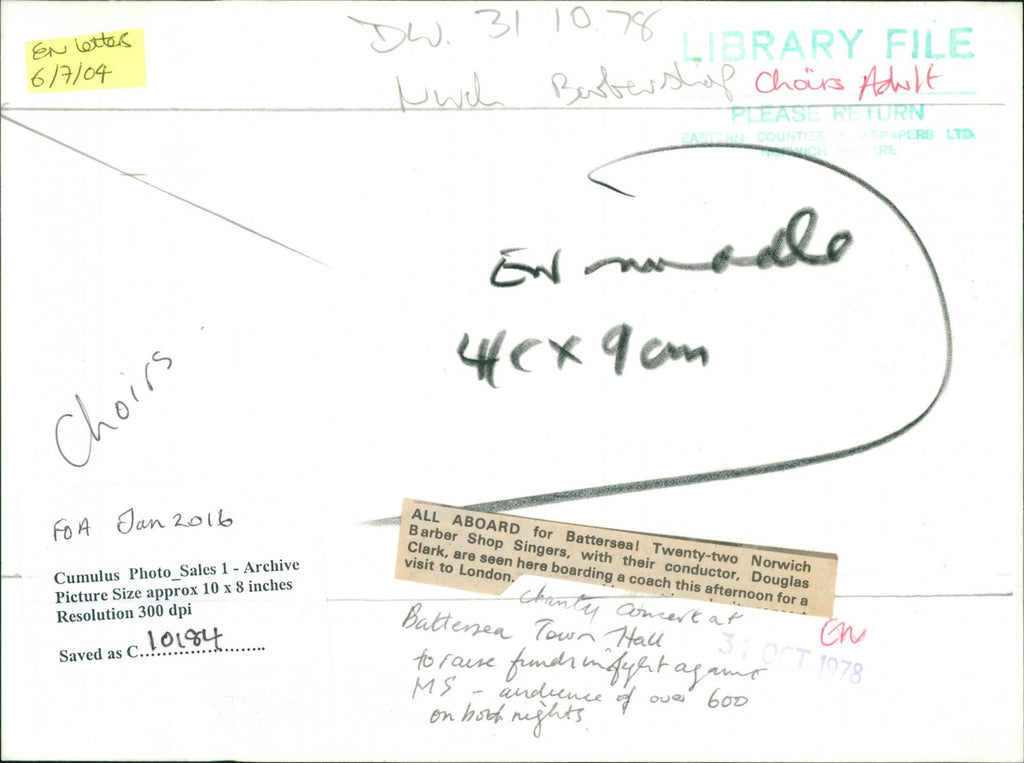 EN letters
6/7/04
DW. 31 10.78
Nwch Barbershop Choirs Adult
LIBRARY FILE
PLEASE RETURN
EASTERN COUNTIES NEWSPAPERS LTD.
NORWICH
EN
4c x 9cm
Choirs
FOA Jan 2016
Cumulus Photo_Sales 1 - Archive
Picture Size approx 10 x 8 inches
Resolution 300 dpi
Saved as C. 10184
ALL ABOARD for Battersea! Twenty-two Norwich
Barber Shop Singers, with their conductor, Douglas
Clark, are seen here boarding a coach this afternoon for a
visit to London.
charity concert at
Battersea Town Hall
to raise funds in fight against
MS - audience of over 600
on both nights.
EN
31 OCT 1978